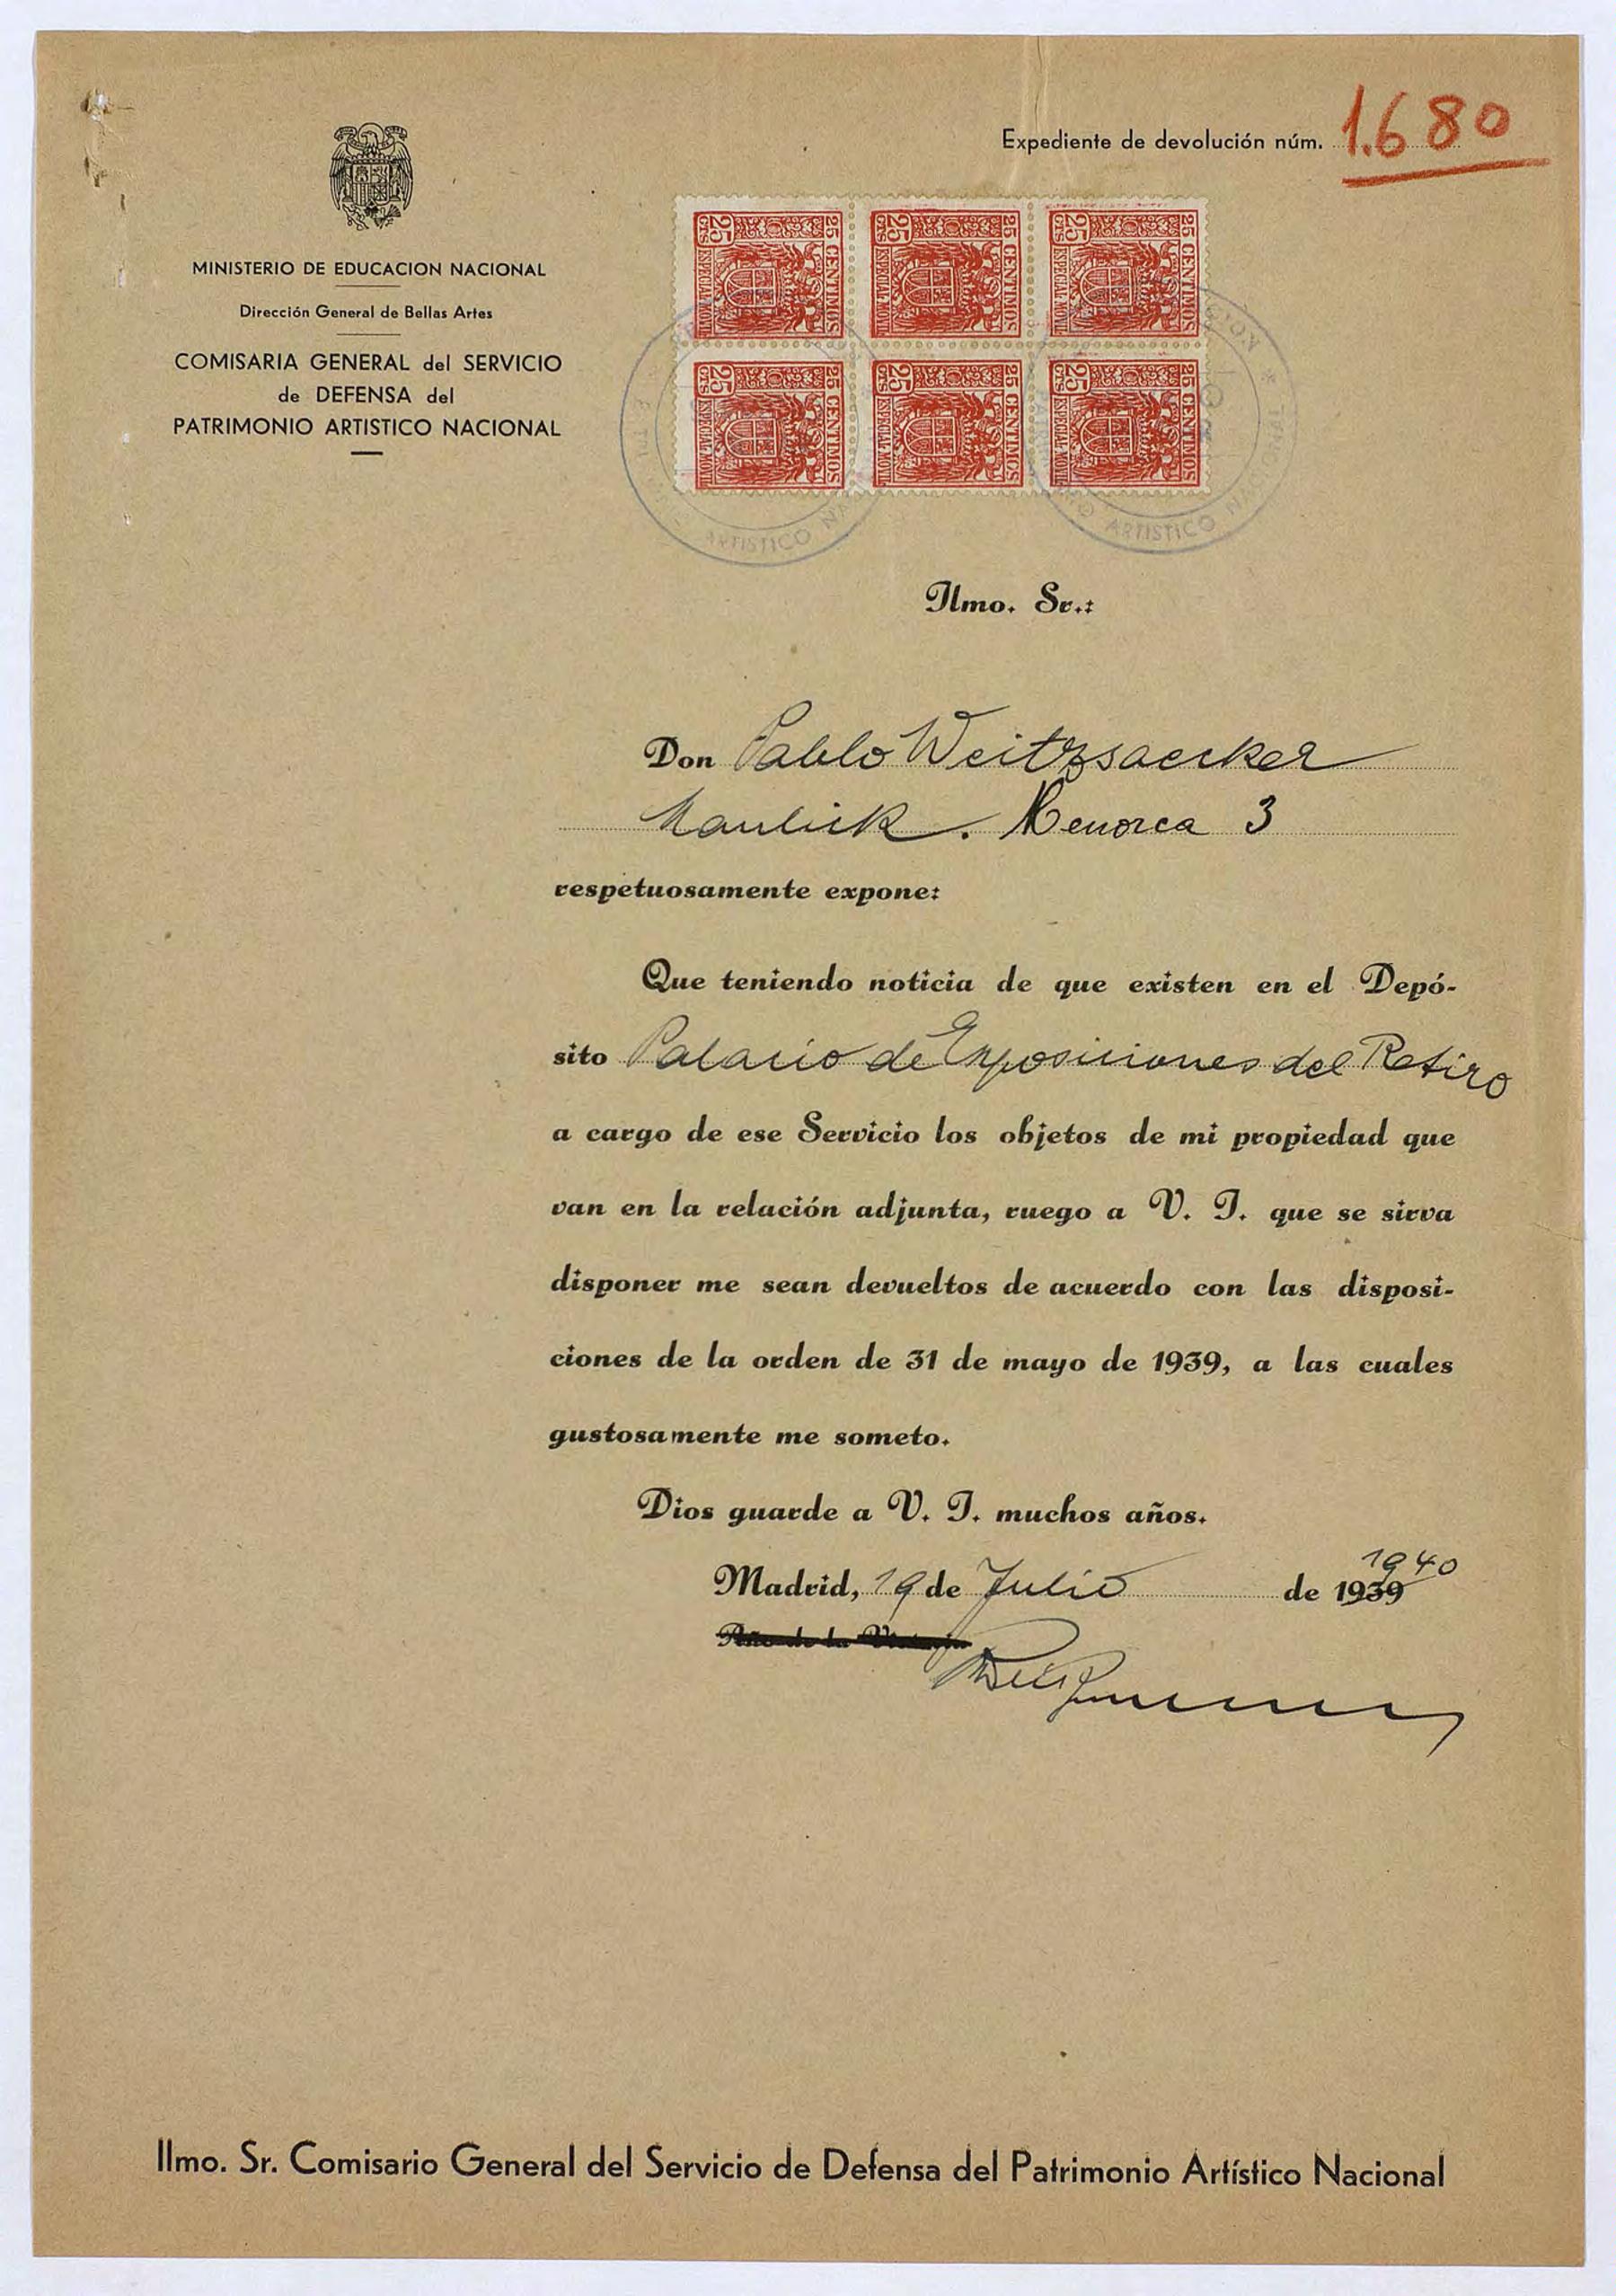 Expediente de devolución núm. 1.680
MINISTERIO DE EDUCACION NACIONAL
Dirección General de Bellas Artes
COMISARIA GENERAL del SERVICIO
de DEFENSA del
PATRIMONIO ARTISTICO NACIONAL
25 CTS 25 CENTIMOS ESPECIAL MOVIL
25 CTS 25 CENTIMOS ESPECIAL MOVIL
25 CTS 25 CENTIMOS ESPECIAL MOVIL
25 CTS 25 CENTIMOS ESPECIAL MOVIL
25 CTS 25 CENTIMOS ESPECIAL MOVIL
25 CTS 25 CENTIMOS ESPECIAL MOVIL
ARTISTICO
ARTISTICO NACIONAL
Ilmo. Sr.:
Don Pablo Weitzsaecker
Menorca 3
respetuosamente expone:
Que teniendo noticia de que existen en el Depó-
sito Palacio de Exposiciones del Retiro
a cargo de ese Servicio los objetos de mi propiedad que
van en la relación adjunta, ruego a V. I. que se sirva
disponer me sean devueltos de acuerdo con las disposi-
ciones de la orden de 31 de mayo de 1939, a las cuales
gustosamente me someto.
Dios guarde a V. I. muchos años.
Madrid, 19 de Julio de 1939 1940
Año de la Victoria
Ilmo. Sr. Comisario General del Servicio de Defensa del Patrimonio Artístico Nacional